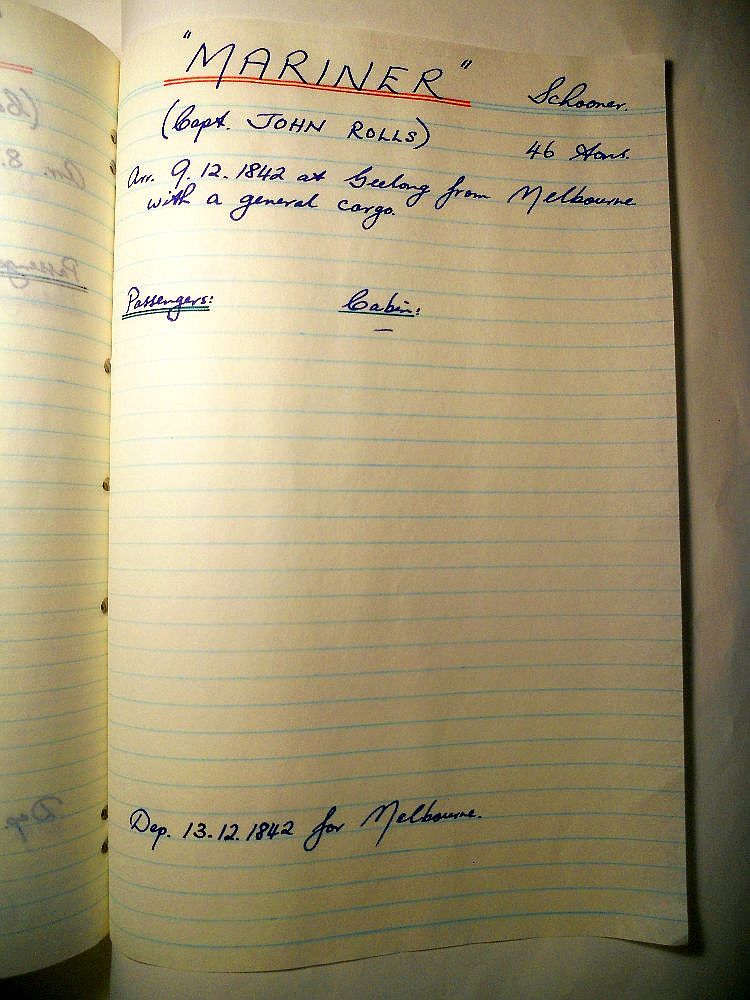 "MARINER"
Schooner.
(Capt. JOHN ROLLS)
46 tons.
Arr. 9.12.1842 at Geelong from Melbourne
with a general cargo.
Passengers: Cabin:
—
Dep. 13.12.1842 for Melbourne.